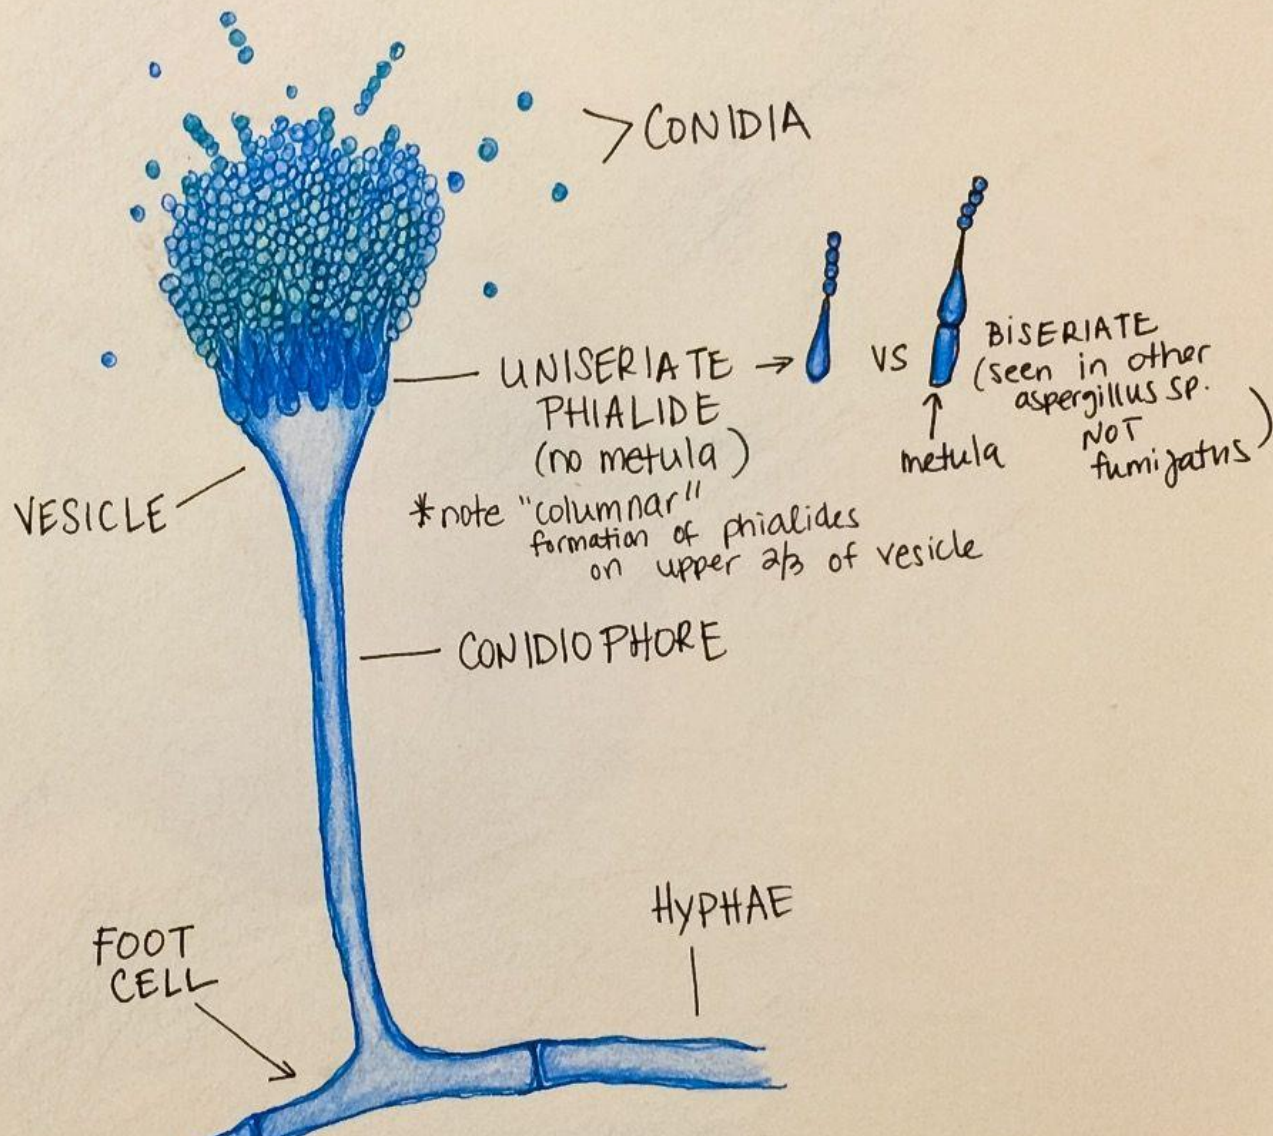 CONIDIA
UNISERIATE →
PHIALIDE
(no metula)
VS
BISERIATE
(seen in other
aspergillus sp.
NOT
fumigatus)
metula
*note "columnar"
formation of phialides
on upper 2/3 of vesicle
VESICLE
CONIDIOPHORE
HYPHAE
FOOT
CELL